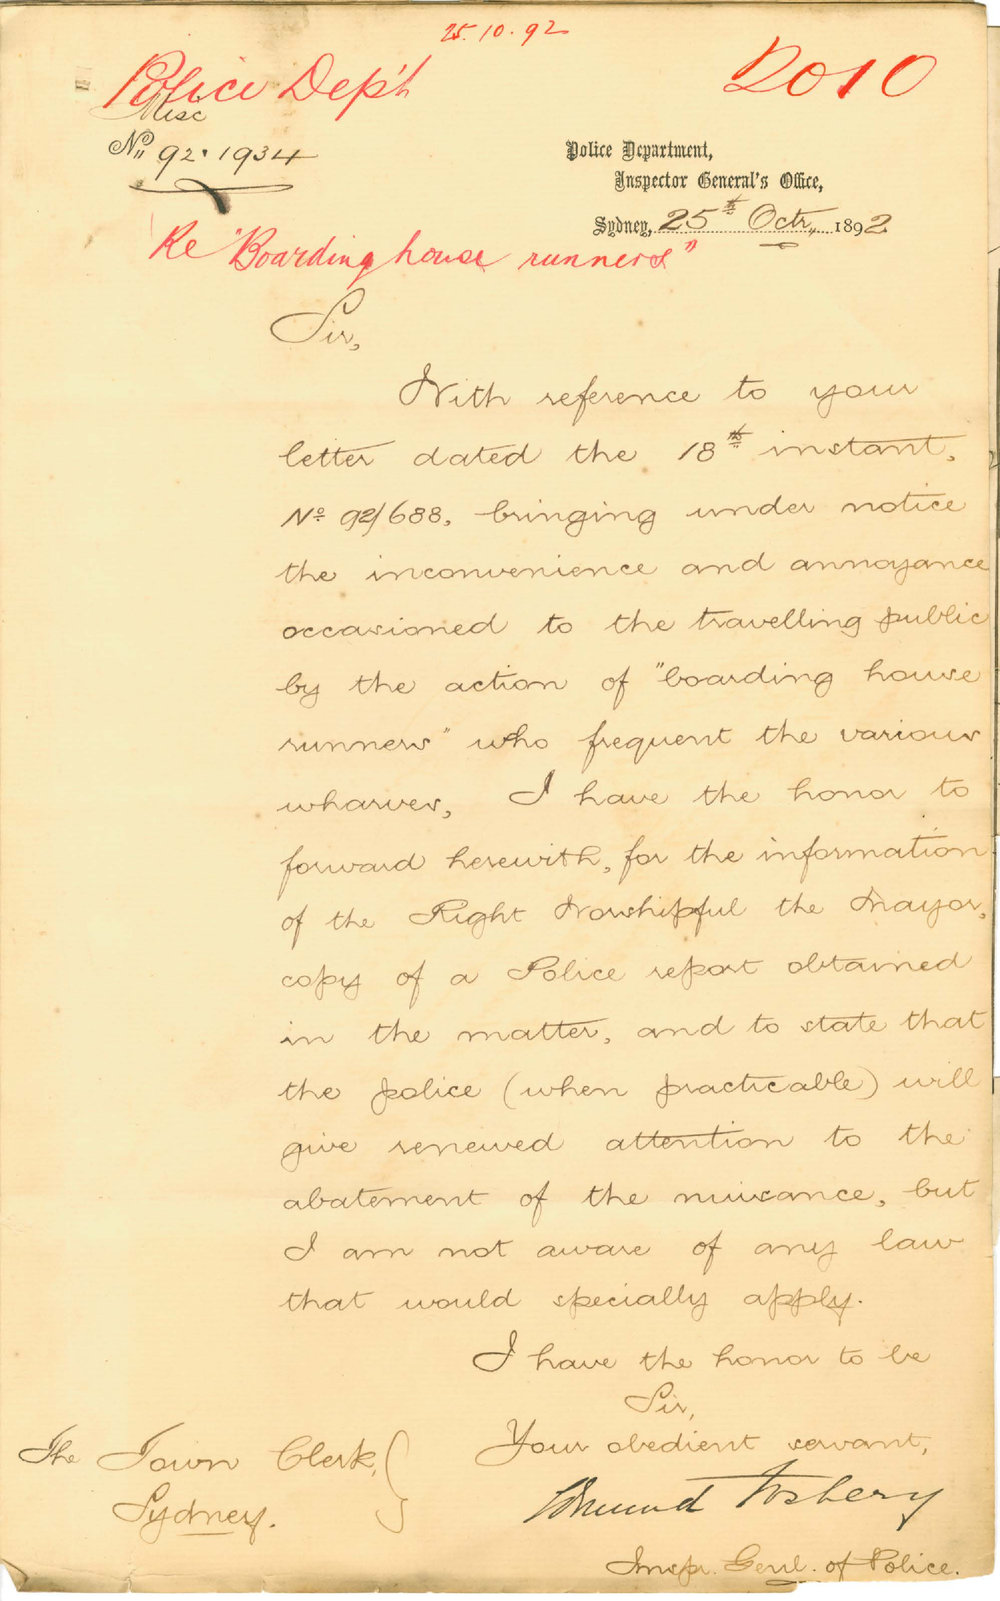 25.10.92
Police Dep't
2010
Misc
No. 92.1934
Police Department,
Inspector General's Office,
Sydney, 25th Octr, 1892
Re "Boarding house runners"
Sir,
With reference to your
letter dated the 18th instant,
No 92/688, bringing under notice
the inconvenience and annoyance
occasioned to the travelling public
by the action of "boarding house
runners" who frequent the various
wharves, I have the honor to
forward herewith, for the information
of the Right Worshipful the Mayor,
copy of a Police report obtained
in the matter, and to state that
the police (when practicable) will
give renewed attention to the
abatement of the nuisance, but
I am not aware of any law
that would specially apply.
I have the honor to be
Sir,
Your obedient servant,
Edmund Fosbery
Inspr. Genl. of Police.
The Town Clerk,
Sydney.